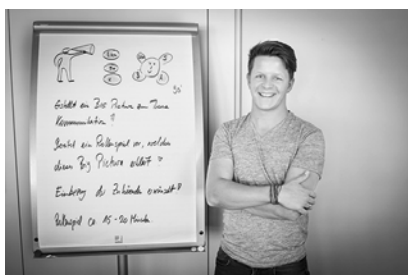 Erstellt ein Big Picture zum Thema
Kommunikation!
ein Rollenspiel vor, welches
dieses Big Picture erklärt
der Zuhörenden erwünscht!
Rollenspiel ca. 15 - 20 Minuten